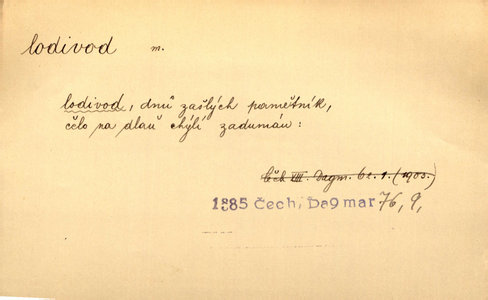 lodivod m.
lodivod, dnů zašlých pamětník,
čelo na dlaň chýlí zadumán:
Čch VIII. Dagm. 61.1. (1903.)
1885 Čech, Dagmar 76, 9,